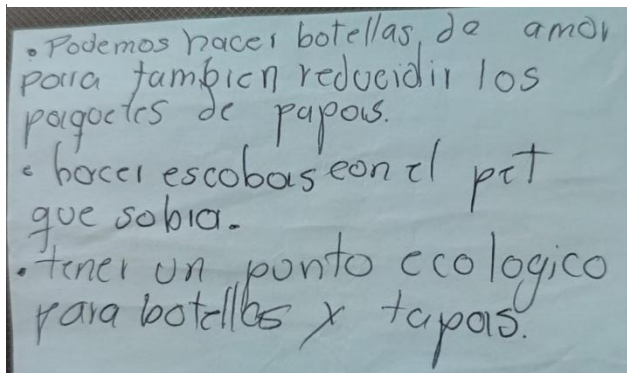 . Podemos hacer botellas de amor
para tambien reducidir los
paquetes de papas.
. hacer escobas con el pet
que sobra.
. tener un punto ecologico
para botellas y tapas.